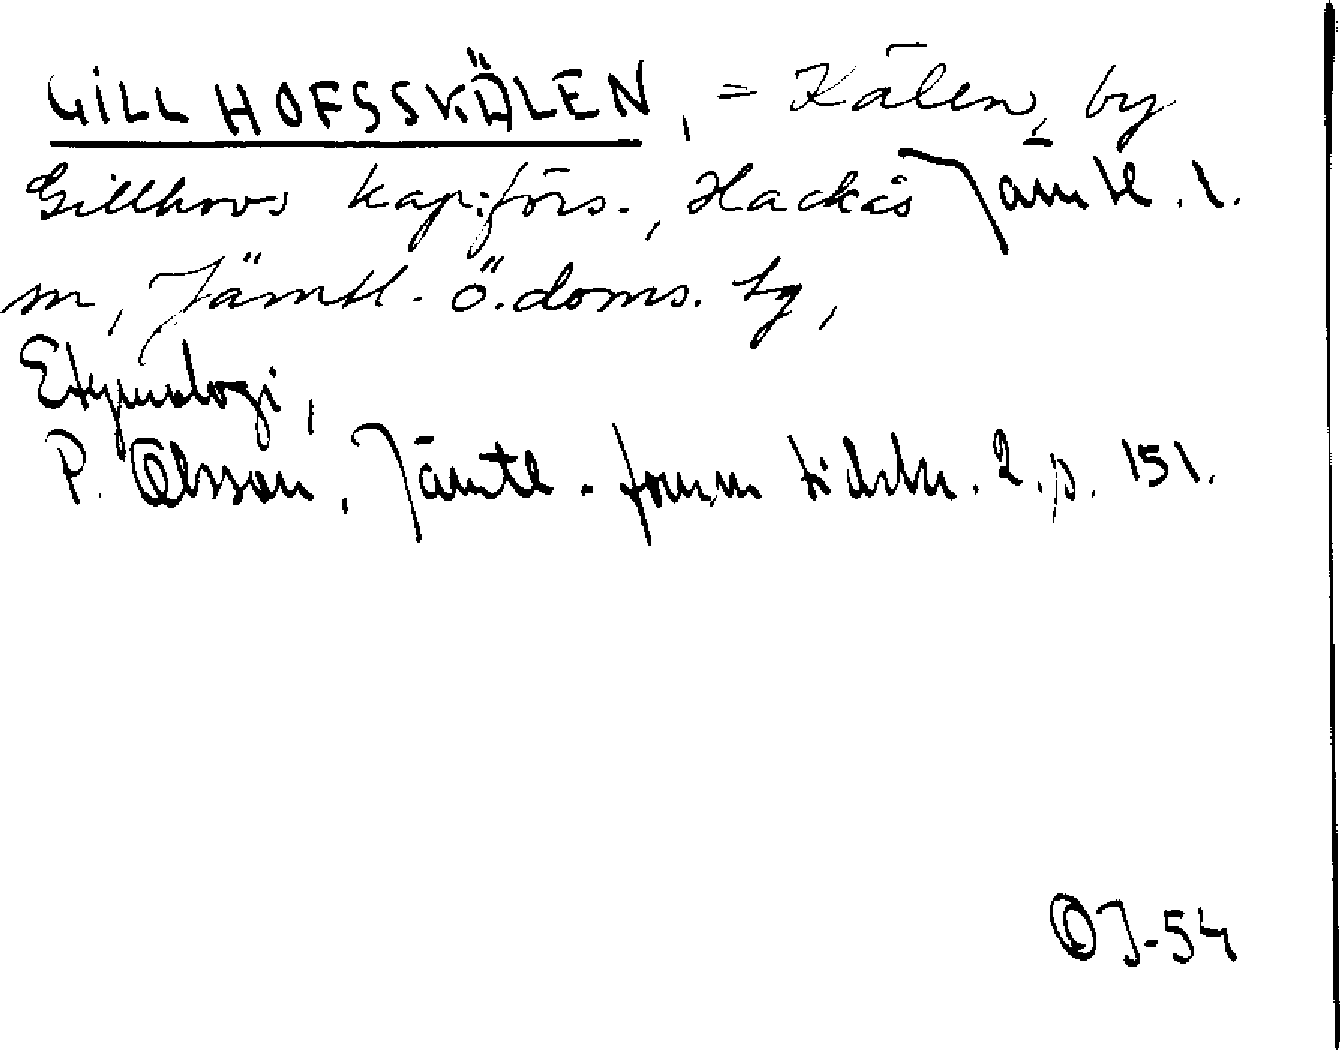 GILLHOFSSKÄLEN, = Kälen, by
Gillhovs kap:förs., Hackås Jämtl. l.
m, Jämtl. ö. doms. tg,
Etymologi,
P. Olsson, Jämtl. fornm tidskr. 2. p. 151.
OJ-54